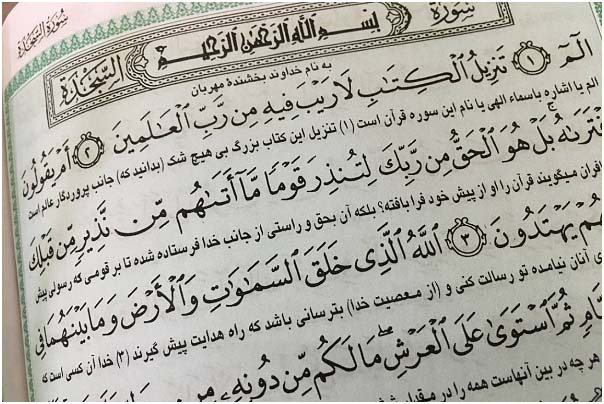 سُورَةُ السَّجْدَةِ
سُورَةُ السَّجْدَةِ
بِسْمِ اللَّهِ الرَّحْمَٰنِ الرَّحِيمِ
به نام خداوند بخشندهٔ مهربان
الٓمٓ ﴿١﴾ تَنزِيلُ ٱلْكِتَٰبِ لَا رَيْبَ فِيهِ مِن رَّبِّ ٱلْعَٰلَمِينَ ﴿٢﴾ أَمْ يَقُولُونَ
الم یا اشاره باسماء الهی یا نام این سوره قرآن است (۱) تنزیل این کتاب بزرگ بی هیچ شک (بدانید که) جانب پروردگار عالم است
ٱفْتَرَىٰهُ بَلْ هُوَ ٱلْحَقُّ مِن رَّبِّكَ لِتُنذِرَ قَوْمًا مَّآ أَتَىٰهُم مِّن نَّذِيرٍ مِّن قَبْلِكَ
کافران میگویند قرآن را او از پیش خود فرا بافته؟ بلکه آن بحق و راستی از جانب خدا فرستاده شده تا بر قومی که رسولی پیش
لَعَلَّهُمْ يَهْتَدُونَ ﴿٣﴾ ٱللَّهُ ٱلَّذِى خَلَقَ ٱلسَّمَٰوَٰتِ وَٱلْأَرْضَ وَمَا بَيْنَهُمَا فِى
آنان نیامده تو رسالت کنی و (از معصیت خدا) بترسانی باشد که راه هدایت پیش گیرند (۳) خدا آن کسی است که
ثُمَّ ٱسْتَوَىٰ عَلَى ٱلْعَرْشِ مَا لَكُم مِّن دُونِهِۦ مِن
هر چه در بین آنهاست همه را در مقدار